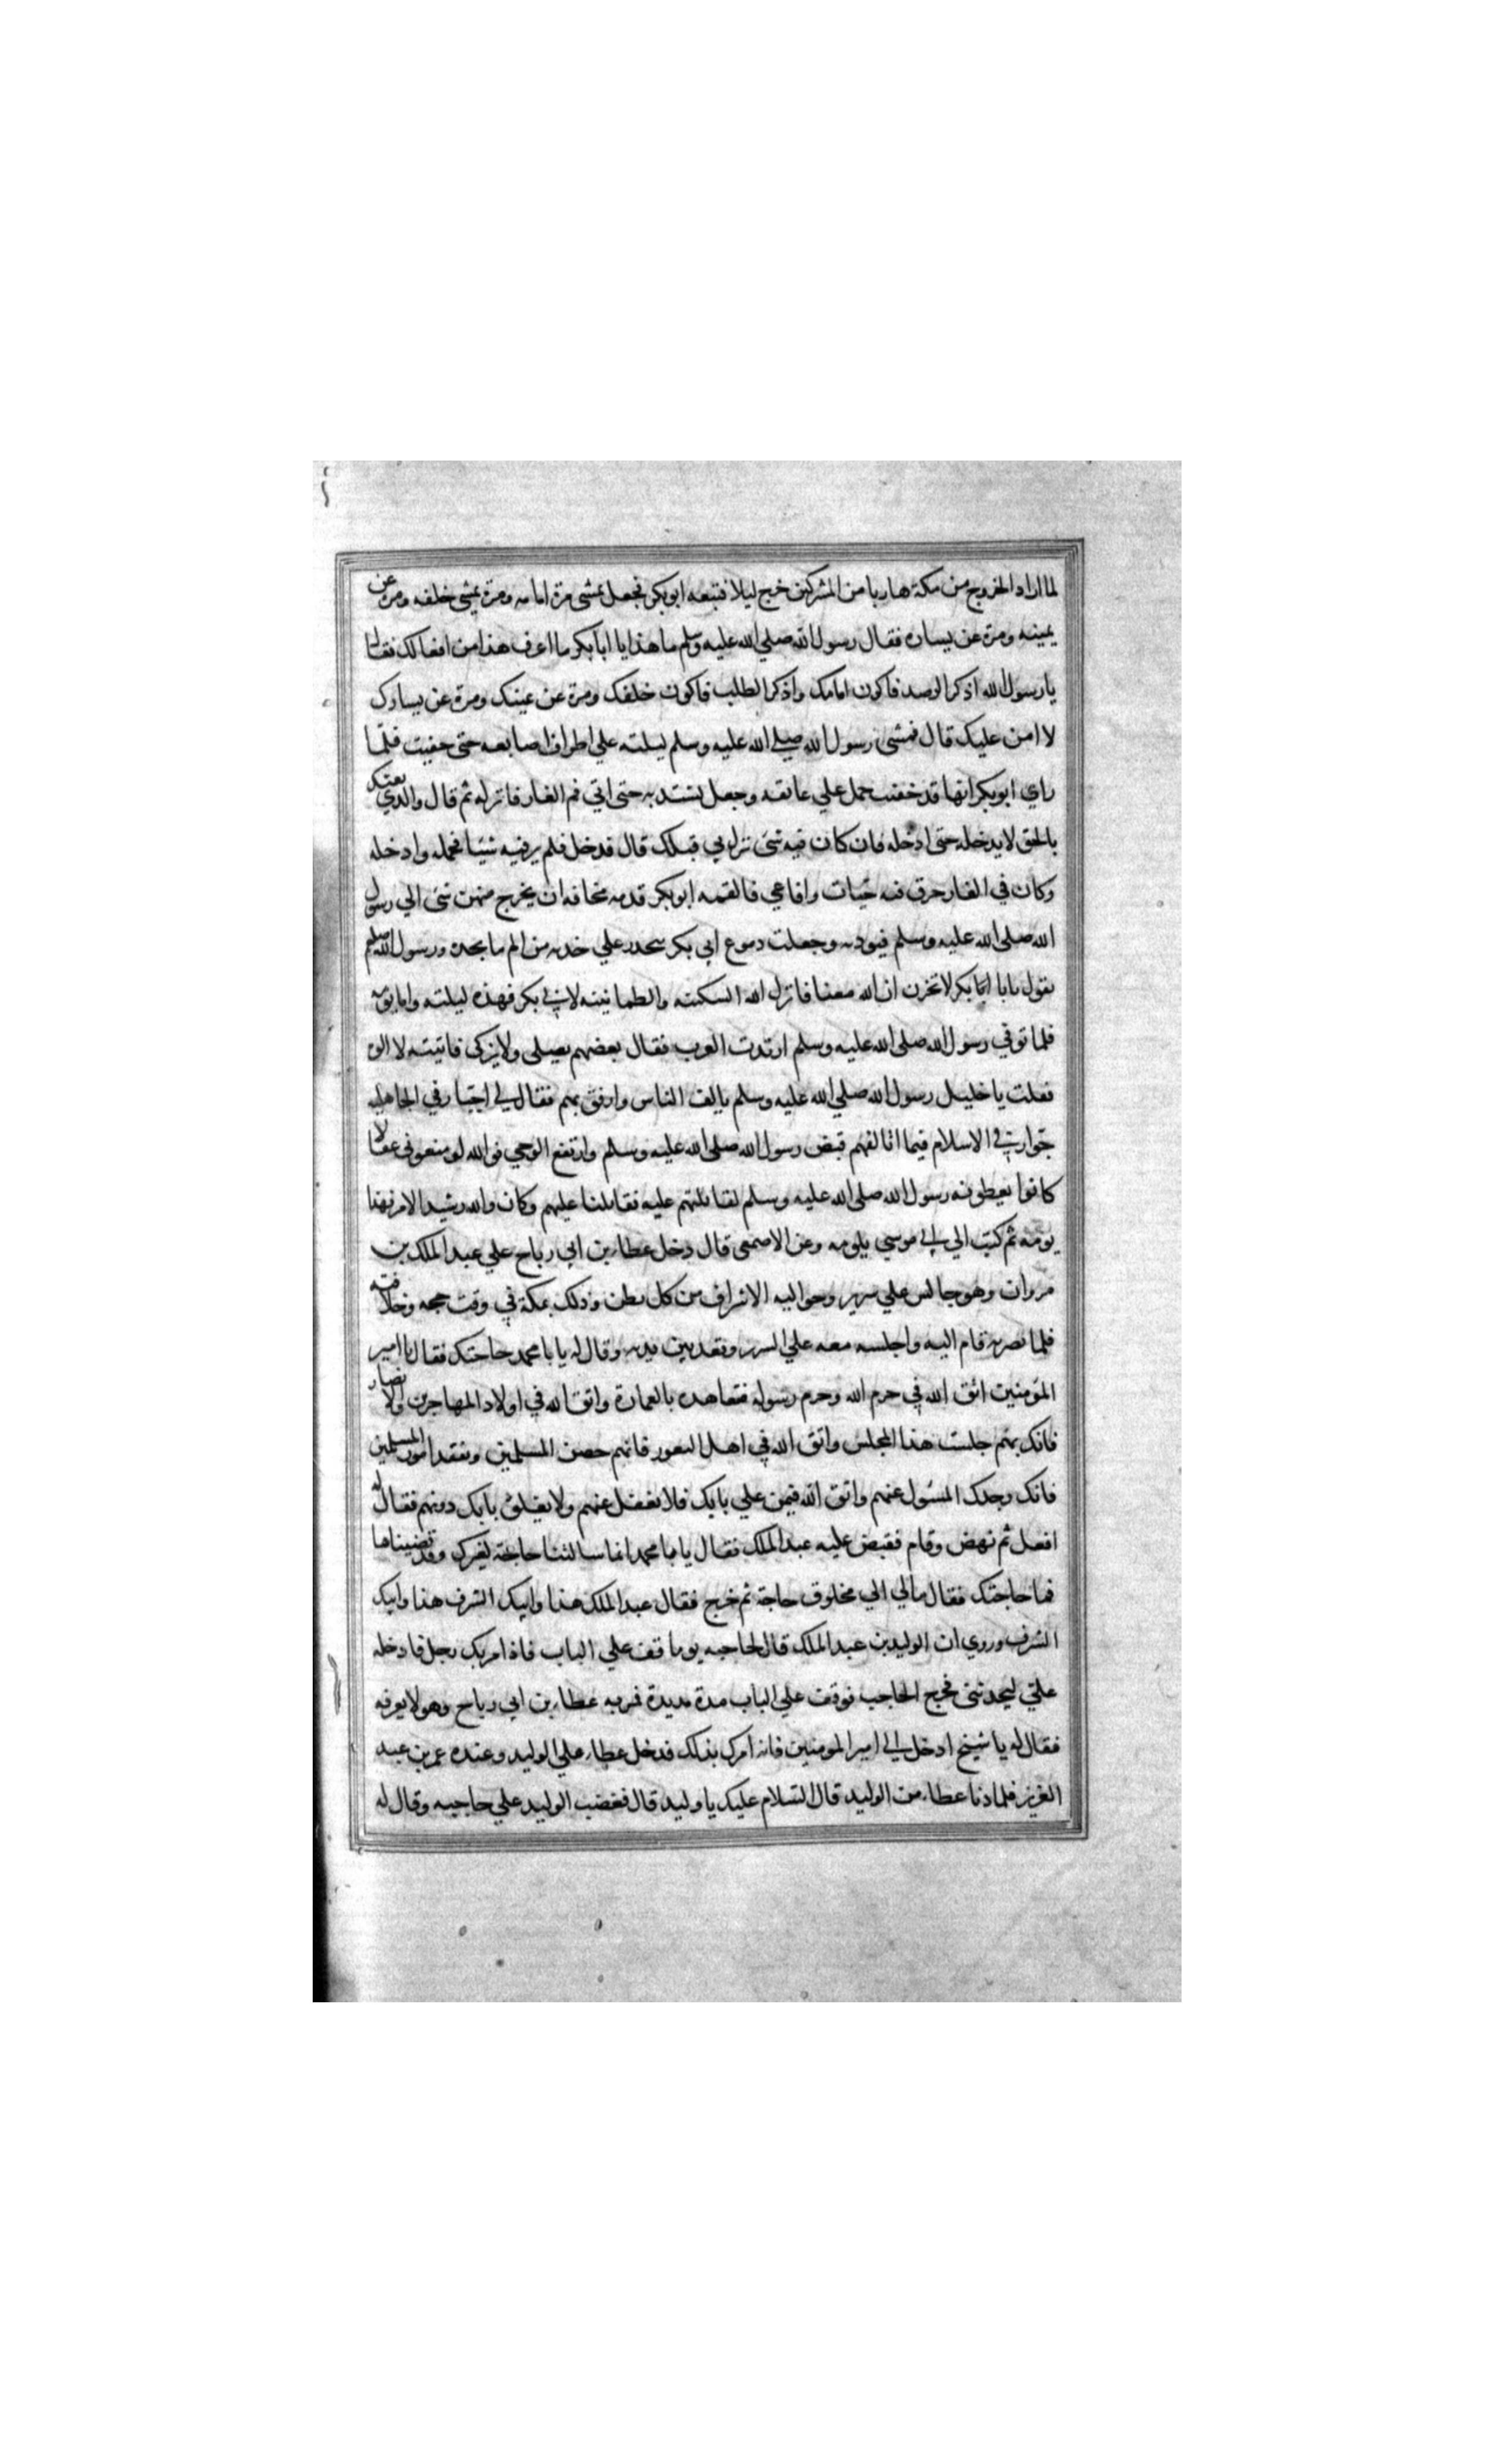 لما اراد الخروج من مكة هاربا من المشركين خرج ليلا فتبعه ابوبكر فجعل يمشى مرة امامه ومرة يمشي خلفه ومرة عن
يمينه ومرة عن يساره فقال رسول الله صلي الله عليه وسلم ما هذا يا ابابكر ما اعرف هذا من افعالك فقال
يا رسول الله اذكر الرصد فاكون امامك واذكر الطلب فاكون خلفك ومرة عن يمينك ومرة عن يسارك
لا امن عليك قال فمشى رسول الله صلي الله عليه وسلم ليلته علي اطراف اصابعه حتى حفيت فلما
راي ابوبكر انها قد حفيت حمل علي عاتقه وجعل يشتد به حتى اتي فم الغار فانزله ثم قال والذي بعثك
بالحق لا يدخله حتى ادخله فان كان فيه شئ نزل بي قبلك قال فدخل فلم ير فيه شيئا فحمله وادخله
وكان في الغار خرق فيه حيات وافاعي فالقمه ابوبكر قدمه مخافة ان يخرج منهن شئ الي رسول
الله صلى الله عليه وسلم فيوذيه وجعلت دموع ابي بكر تتحدر علي خديه من الم ما يجده ورسول الله صلعم
يقول يابا ابابكر لا تحزن ان الله معنا فانزل الله السكينه والطمانينه لابي بكر فهذه ليلته واما يومه
فلما توفي رسول الله صلى الله عليه وسلم ارتدت العرب فقال بعضهم نصلى ولا نزكى فاتيته لا الوه
فقلت يا خليل رسول الله صلي الله عليه وسلم تالف الناس وارفق بهم فقال لي اجبار في الجاهليه
خوار في الاسلام فيما اتالفهم قبض رسول الله صلى الله عليه وسلم وارتفع الوحي فوالله لو منعوني عقالا
كانوا يعطونه رسول الله صلى الله عليه وسلم لقاتلتهم عليه فقاتلنا عليهم وكان والله رشيد الامر فهذا
يومه ثم كتب الي ابي موسي يلومه وعن الاصمعي قال دخل عطاء بن ابي رباح علي عبد الملك بن
مروان وهو جالس علي سريره وحواليه الاشراف من كل بطن وذلك بمكة في وقت حجه وخلافته
فلما بصر به قام اليه واجلسه معه علي السرير وقعد بين يديه وقال له يا با محمد حاجتك فقال يا امير
المؤمنين اتق الله في حرم الله وحرم رسوله فتعاهده بالعمارة واتق الله في اولاد المهاجرين والانصار
فانك بهم جلست هذا المجلس واتق الله في اهل الثغور فانهم حصن المسلمين وتفقد امور المسلمين
فانك وحدك المسئول عنهم واتق الله فيمن علي بابك فلا تغفل عنهم ولا تغلق بابك دونهم فقال له
افعل ثم نهض وقام فقبض عليه عبد الملك فقال يا با محمد انما سالتنا حاجة لغيرك وقد قضيناها
فما حاجتك فقال مالي الي مخلوق حاجة ثم خرج فقال عبد الملك هذا وابيك الشرف هذا وابيك
الشرف وروي ان الوليد بن عبد الملك قال لحاجبه يوما قف علي الباب فاذا مر بك رجل فادخله
علي ليحدثني فخرج الحاجب فوقف علي الباب مدة مديدة فمر به عطاء بن ابي رباح وهو لا يعرفه
فقال له يا شيخ ادخل الي امير المومنين فانه امرك بذلك فدخل عطاء علي الوليد وعنده عمر بن عبد
العزيز فلما دنا عطاء من الوليد قال السلام عليك يا وليد قال فغضب الوليد علي حاجبه وقال له